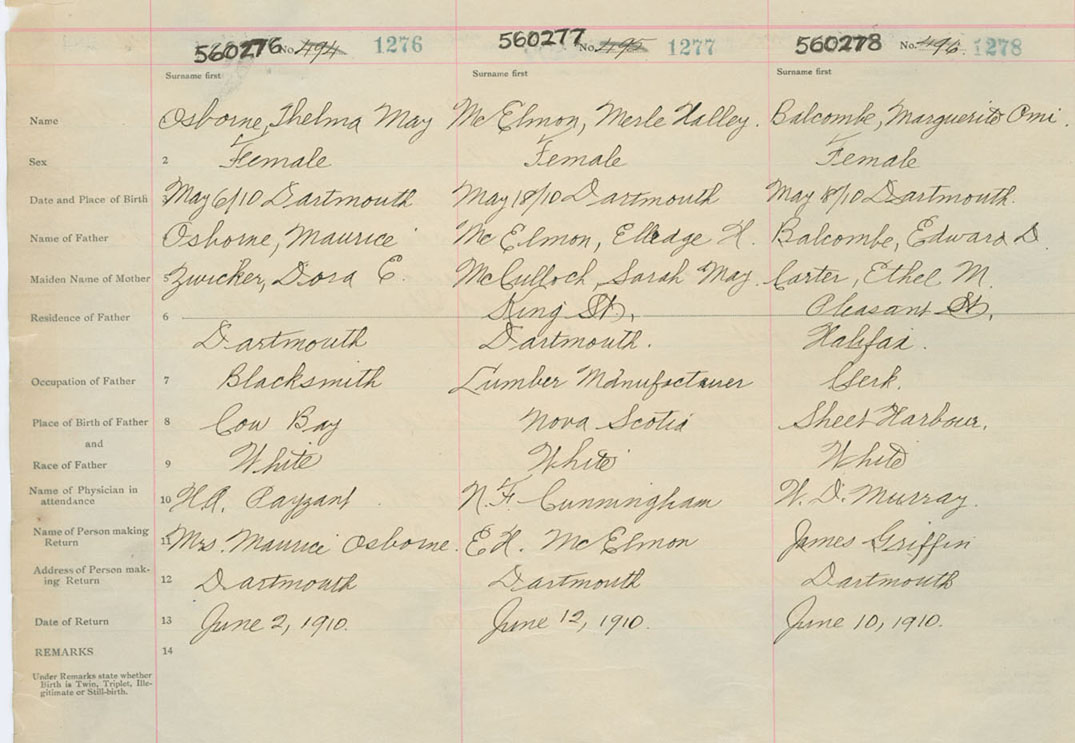 560276 No. 494 1276 560277 No. 495 1277 560278 No. 496. 1278
Surname first Surname first Surname first
Name Osborne, Thelma May McElmon, Merle Halley. Balcombe, Marguerite Omi.
Sex 2 Female Female Female
Date and Place of Birth 3 May 6/10 Dartmouth May 18/10 Dartmouth May 8/10 Dartmouth.
Name of Father Osborne, Maurice McElmon, Elledge H. Balcombe, Edward D.
Maiden Name of Mother 5 Zwicker, Dora E. McCulloch, Sarah May. Carter, Ethel M.
King St., Pleasant St,
Residence of Father 6
Dartmouth Dartmouth. Halifax.
Occupation of Father 7 Blacksmith Lumber Manufacturer Clerk.
Place of Birth of Father 8 Cow Bay Nova Scotia Sheet Harbour.
and
Race of Father 9 White White White
Name of Physician in
attendance 10 H.A. Payzant. N. F. Cunningham W. D. Murray.
Name of Person making
Return 11 Mrs. Maurice Osborne. E H. McElmon James Griffin
Address of Person mak-
ing Return 12 Dartmouth Dartmouth Dartmouth
Date of Return 13 June 2, 1910. June 12, 1910. June 10, 1910.
REMARKS 14
Under Remarks state whether
Birth is Twin, Triplet, Ille-
gitimate or Still-birth.